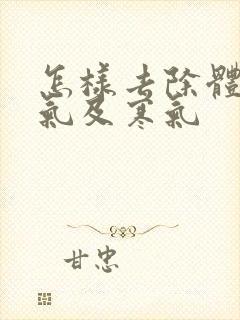 怎樣去除體
氣及寒氣
甘忠